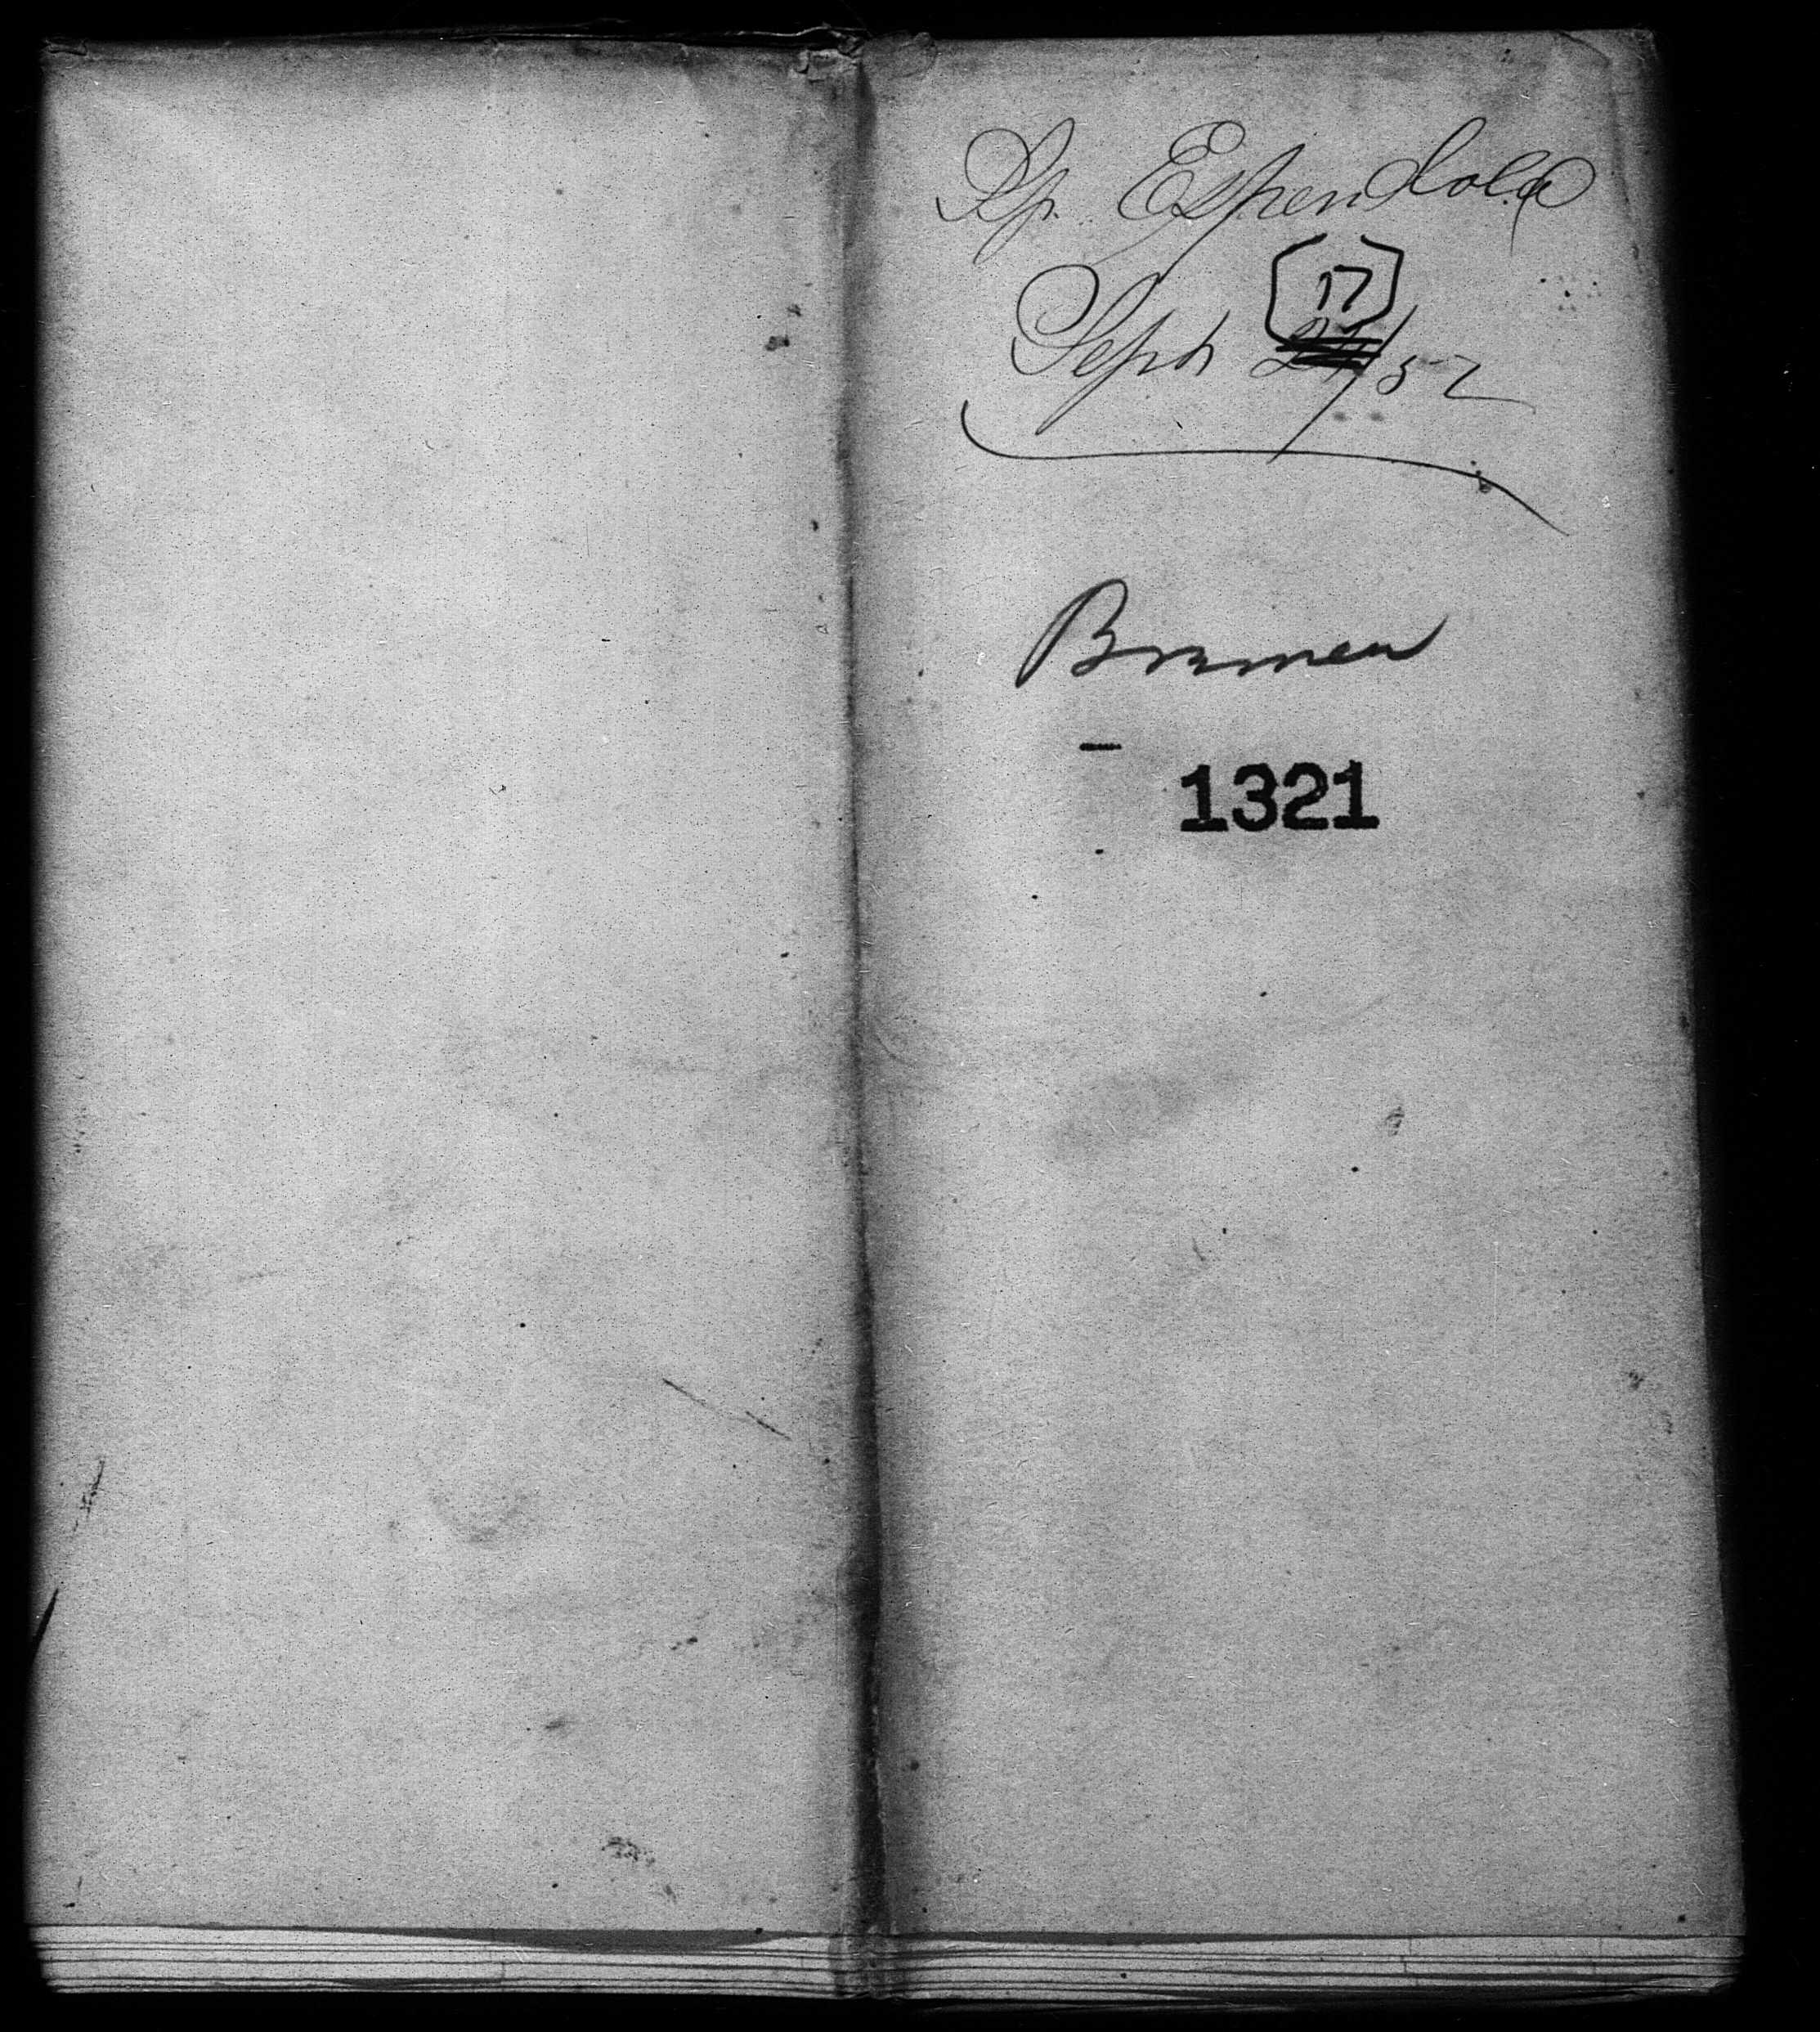 Sp. Espendola
[17]
Sept 24/52
Bremen
1321